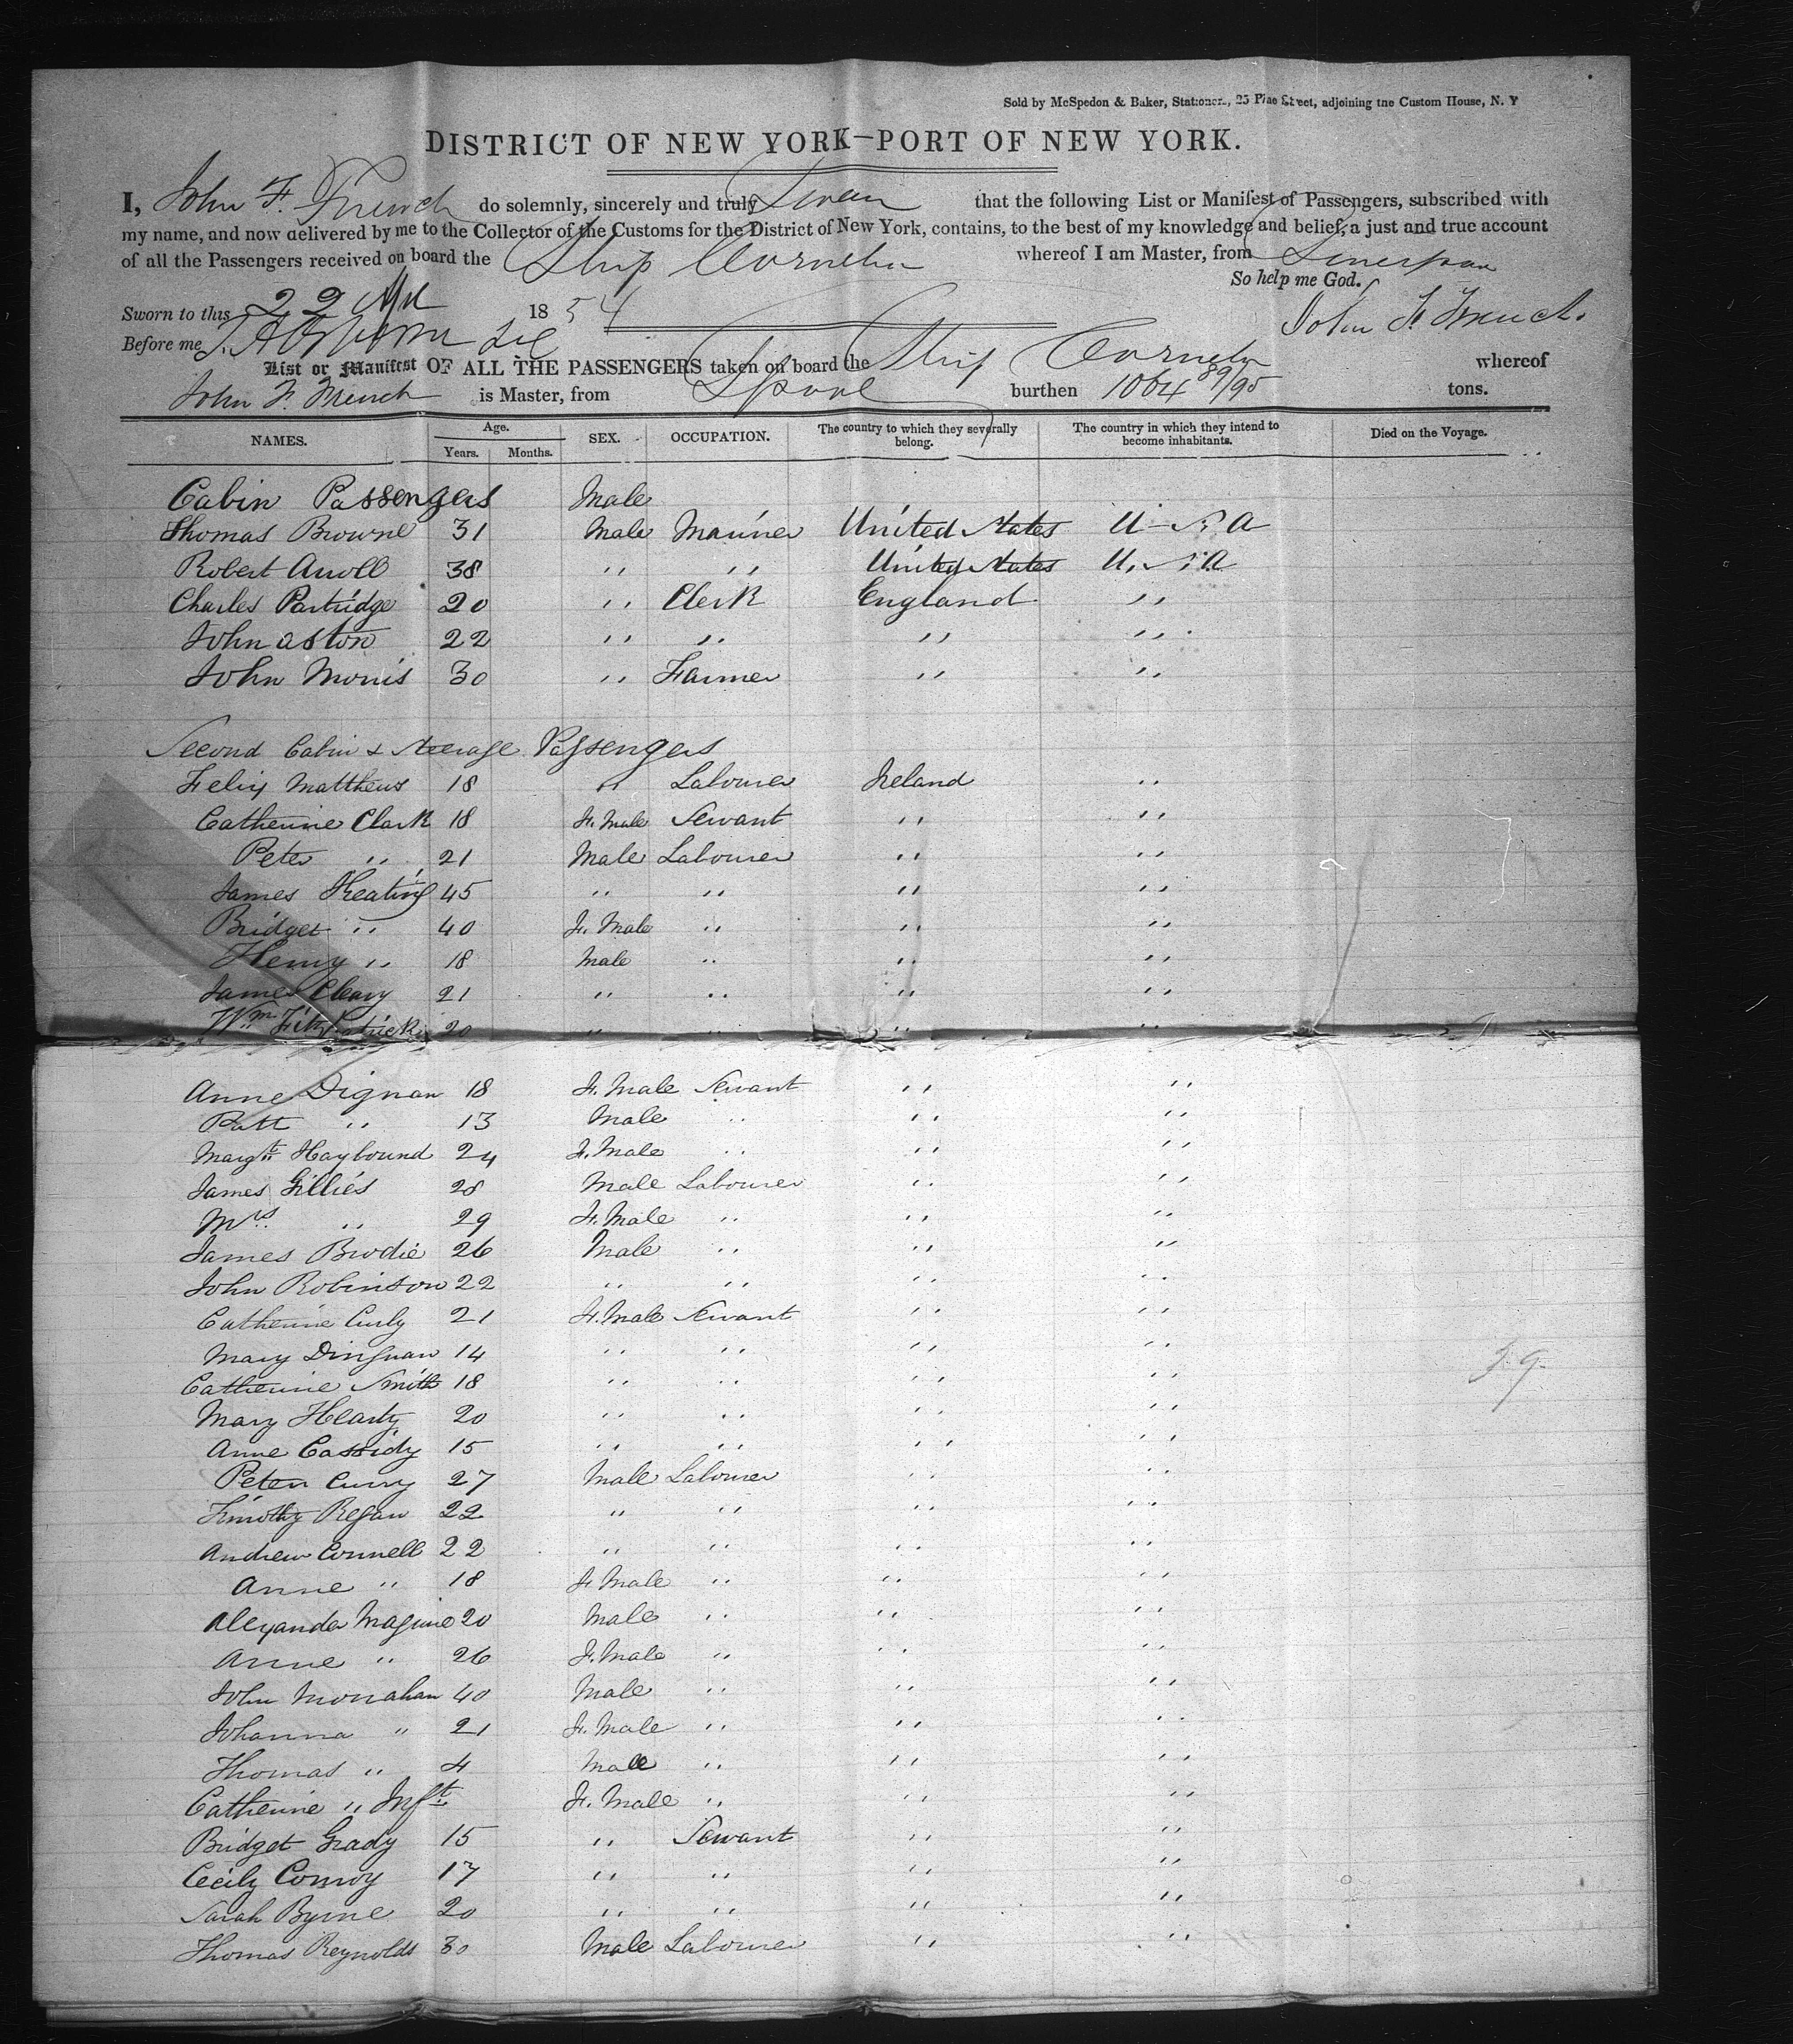 Sold by McSpedon & Baker, Stationers, 25 Pine Street, adjoining the Custom House, N. Y
DISTRICT OF NEW YORK—PORT OF NEW YORK.
I, John F. French do solemnly, sincerely and truly Swear that the following List or Manifest of Passengers, subscribed with
my name, and now delivered by me to the Collector of the Customs for the District of New York, contains, to the best of my knowledge and belief, a just and true account
of all the Passengers received on board the Ship Cornelia whereof I am Master, from Liverpool
So help me God.
Sworn to this 22 1854 John F. French.
Before me
List or Manifest OF ALL THE PASSENGERS taken on board the Ship Cornelia whereof
John F. French is Master, from Lpool burthen 1064 89/95 tons.
NAMES. Age. Years. Months. SEX. OCCUPATION. The country to which they severally belong. The country in which they intend to become inhabitants. Died on the Voyage.
Cabin Passengers Male
Thomas Browne 31 Male Mariner United States U.S.A
Robert Arroll 38 " " United States U.S.A
Charles Partridge 20 " Clerk England "
John Aston 22 " " " "
John Morris 30 " Farmer " "
Second Cabin & Steerage Passengers
Felix Matthews 18 " Labourer Ireland "
Catherine Clark 18 F. Male Servant " "
Peter " 21 Male Labourer " "
James Keating 45 " " " "
Bridget " 40 F. Male " " "
Henry " 18 Male " " "
James Cleary 21 " " " "
Wm Fitzpatrick 20 " " " "
Anne Dignan 18 F. Male Servant " "
Patt " 13 Male " " "
Margt Haybound 24 F. Male " " "
James Gillies 28 Male Labourer " "
Mrs " 29 F. Male " " "
James Brodie 26 Male " " "
John Robinson 22 " " " "
Catherine Curly 21 F. Male Servant " "
Mary Dingnan 14 " " " "
Catherine Smith 18 " " " "
Mary Hearty 20 " " " "
Anne Cassidy 15 " " " "
Peter Curry 27 Male Labourer " "
Timothy Regan 22 " " " "
Andrew Connell 22 " " " "
Anne " 18 F. Male " " "
Alexander Maguire 20 Male " " "
Anne " 26 F. Male " " "
John Monahan 40 Male " " "
Johanna " 21 F. Male " " "
Thomas " 4 Male " " "
Catherine " Inft F. Male " " "
Bridget Grady 15 " Servant " "
Cecily Conroy 17 " " " "
Sarah Byrne 20 " " " "
Thomas Reynolds 30 Male Labourer " "